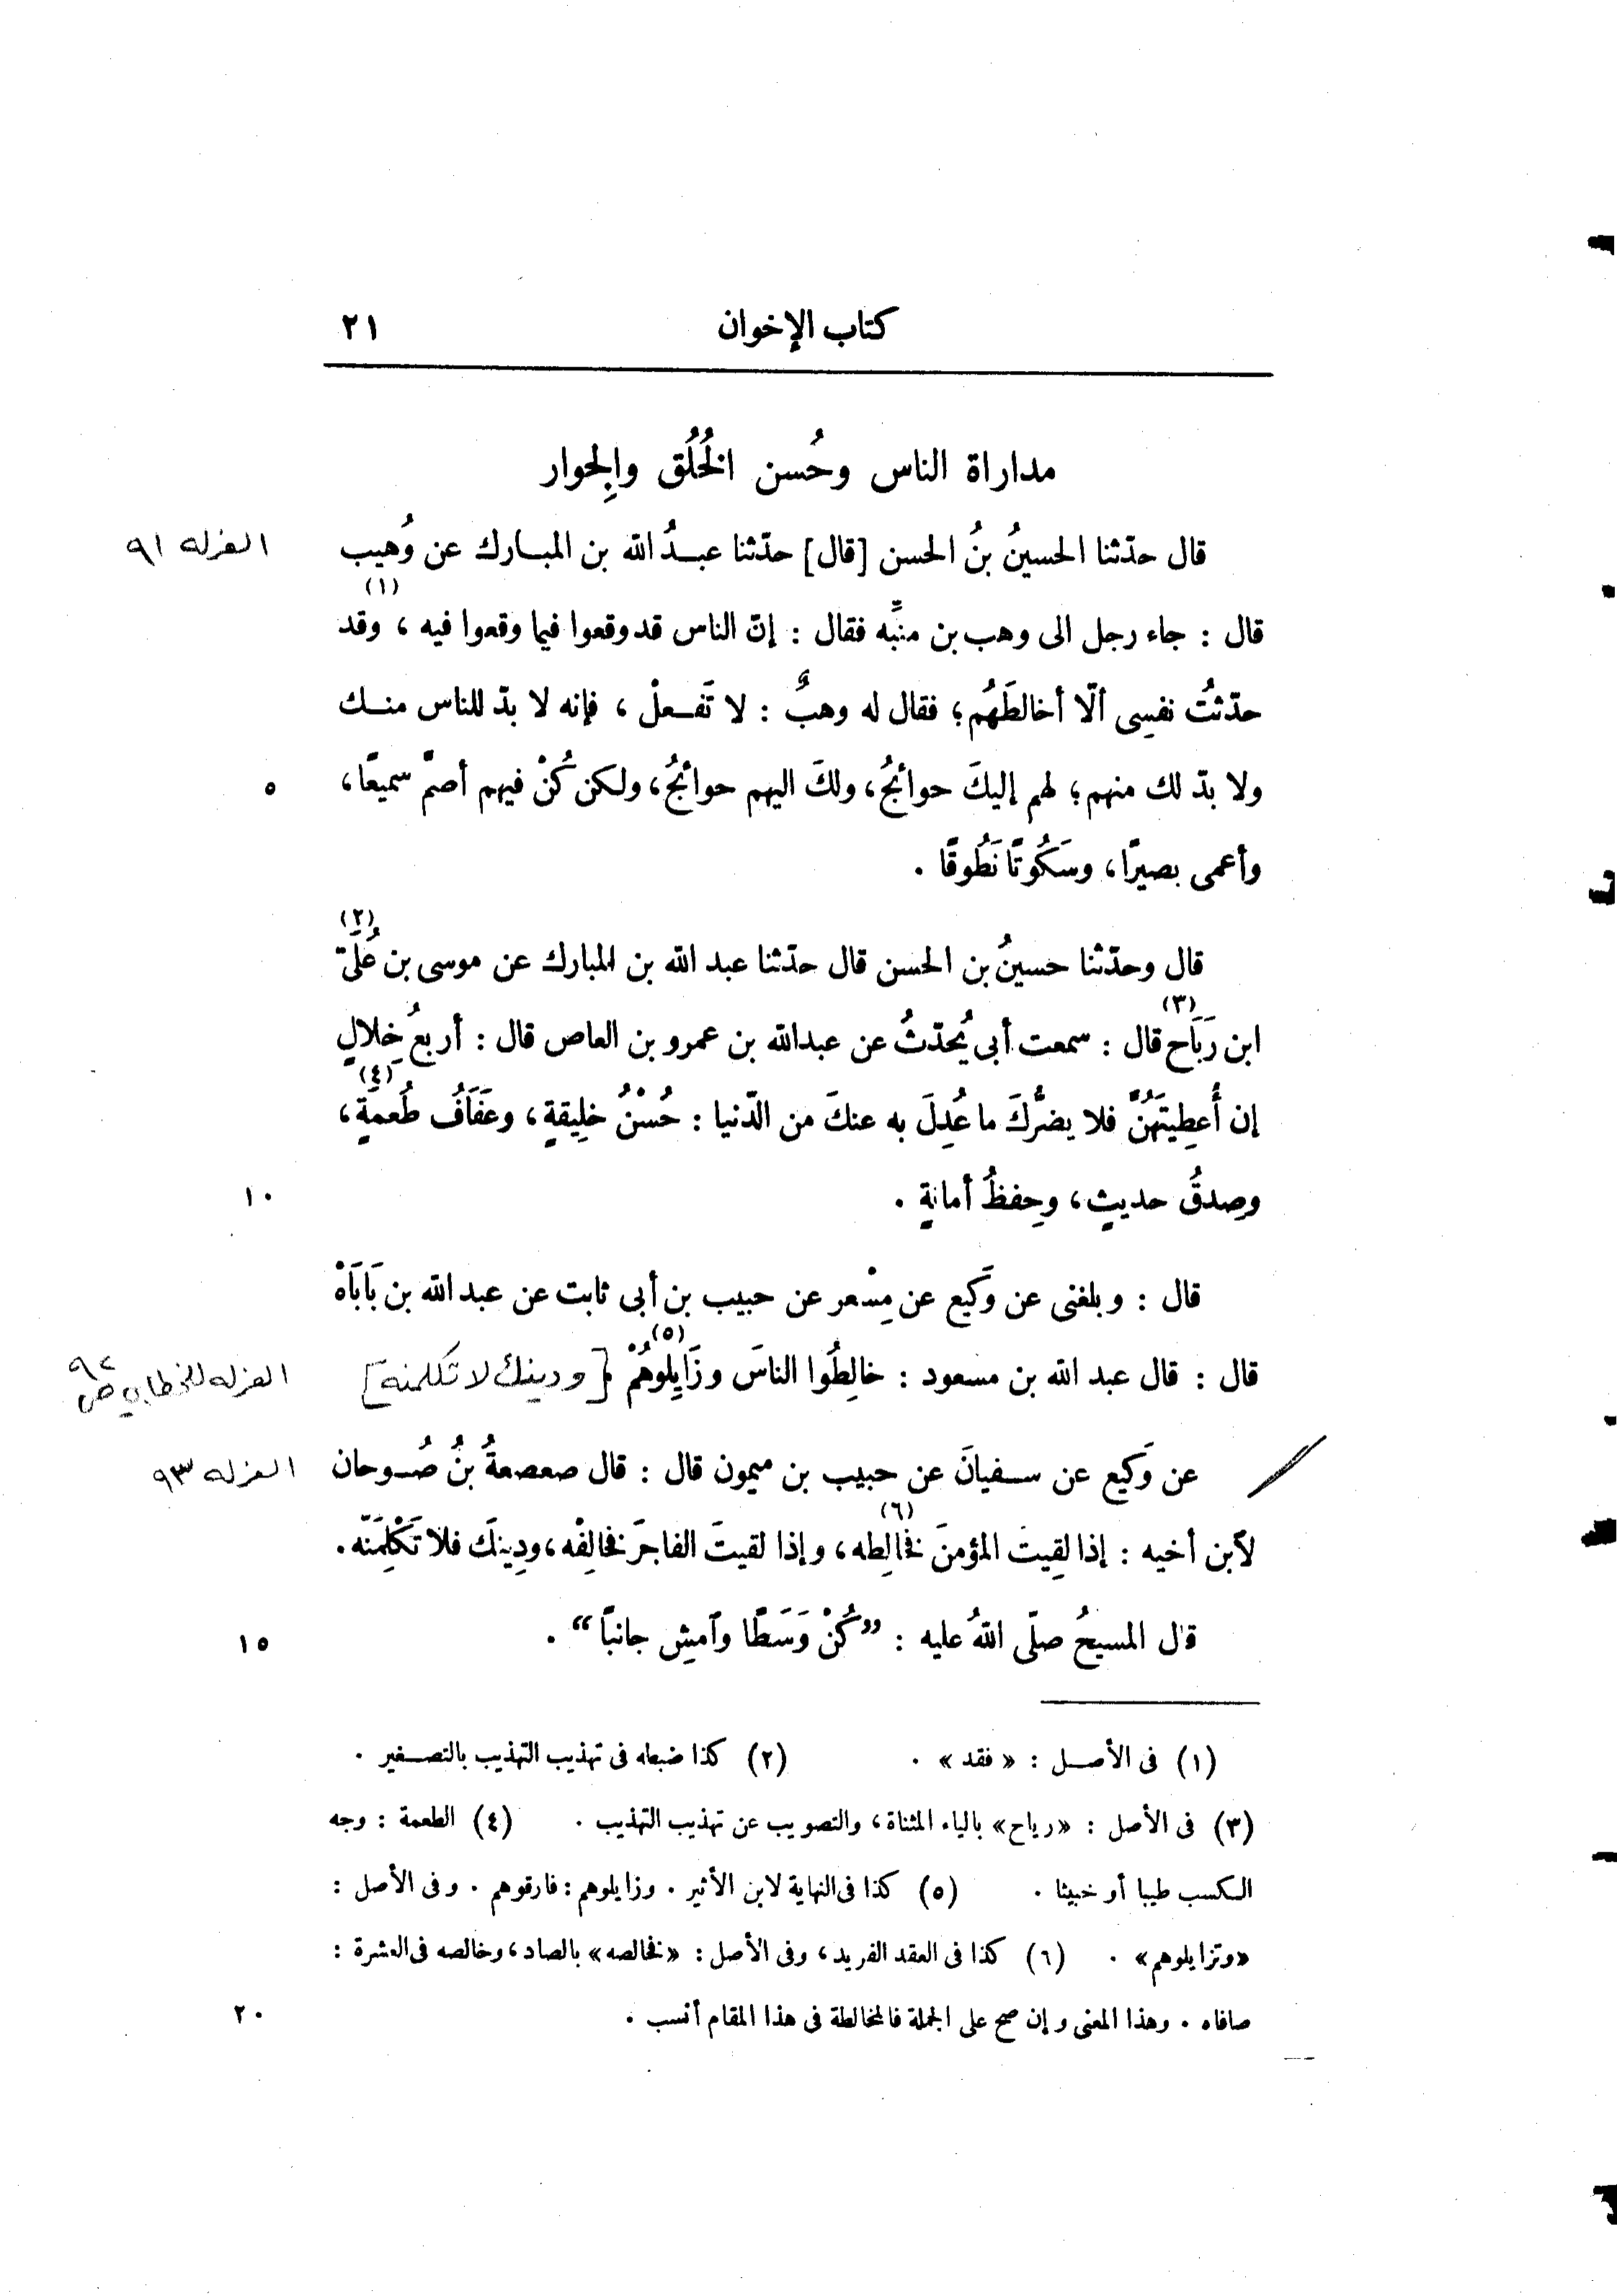 كتاب الإخوان ٢١
مداراة الناس وحُسن الخُلُق والِجوار
قال حدّثنا الحسينُ بنُ الحسن [قال] حدّثنا عبـدُ الله بن المبـارك عن وُهيب العزله ٩١
قال : جاء رجل الى وهب بن منبِّه فقال : إنّ الناس قد وقعوا فيما وقعوا فيه ، وقد (١)
حدّثتُ نفسِى ألّا أخالطَهُم؛ فقال له وهبٌ : لا تَفـعلْ ، فإنه لا بدّ للناس منـك
ولا بدّ لك منهم؛ لهم إليكَ حوائجُ، ولكَ اليهم حوائجُ، ولكن كُنْ فيهم أصمّ سميعًا، ٥
وأعمى بصيرًا، وسَكُوتًا نَطُوقًا .
قال وحدّثنا حسينُ بن الحسن قال حدّثنا عبد الله بن المبارك عن موسى بن عُلَىّ (٢)
ابن رَبَاح (٣) قال : سمعت أبى يُحدّثُ عن عبدالله بن عمرو بن العاص قال : أربعُ خِلالٍ
إن أُعطِيتَهُنّ فلا يضرُّكَ ما عُدِلَ به عنكَ من الدّنيا : حُسْنُ خلِيقةٍ ، وعَفَافُ طُعمةٍ (٤) ،
وصِدقُ حديثٍ ، وحِفظُ أمانةٍ . ١٠
قال : وبلغنى عن وَكيع عن مِسْعر عن حبيب بن أبى ثابت عن عبد الله بن بَابَاهْ
قال : قال عبد الله بن مسعود : خالِطُوا الناسَ وزَايِلوهُمْ (٥) [ودينك لا تكلمنه] العزله للخطابي ص ٩٢
عن وَكيع عن سـفيانَ عن حبيب بن ميمون قال : قال صعصعةُ بنُ صُـوحان العزله ٩٣
لآبن أخيه : إذا لقِيتَ المؤمنَ فخالِطه (٦) ، وإذا لقيتَ الفاجرَ فخالِفْه ، ودِينَك فلا تَكْلِمَنّه .
قال المسيحُ صلّى اللهُ عليه : ”كُنْ وَسَطًا وآمشِ جانبًا“ . ١٥
(١) فى الأصـل : «فقد» . (٢) كذا ضبطه فى تهذيب التهذيب بالتصـغير .
(٣) فى الأصل : «رياح» بالياء المثناة ، والتصويب عن تهذيب التهذيب . (٤) الطعمة : وجه
الكسب طيبا أو خبيثا . (٥) كذا فى النهاية لابن الأثير . وزايلوهم : فارقوهم . وفى الأصل :
«وتزايلوهم» . (٦) كذا فى العقد الفريد ، وفى الأصل : «فخالصه» بالصاد ، وخالصه فى العشرة :
صافاه . وهذا المعنى وإن صح على الجملة فالمخالطة فى هذا المقام أنسب . ٢٠